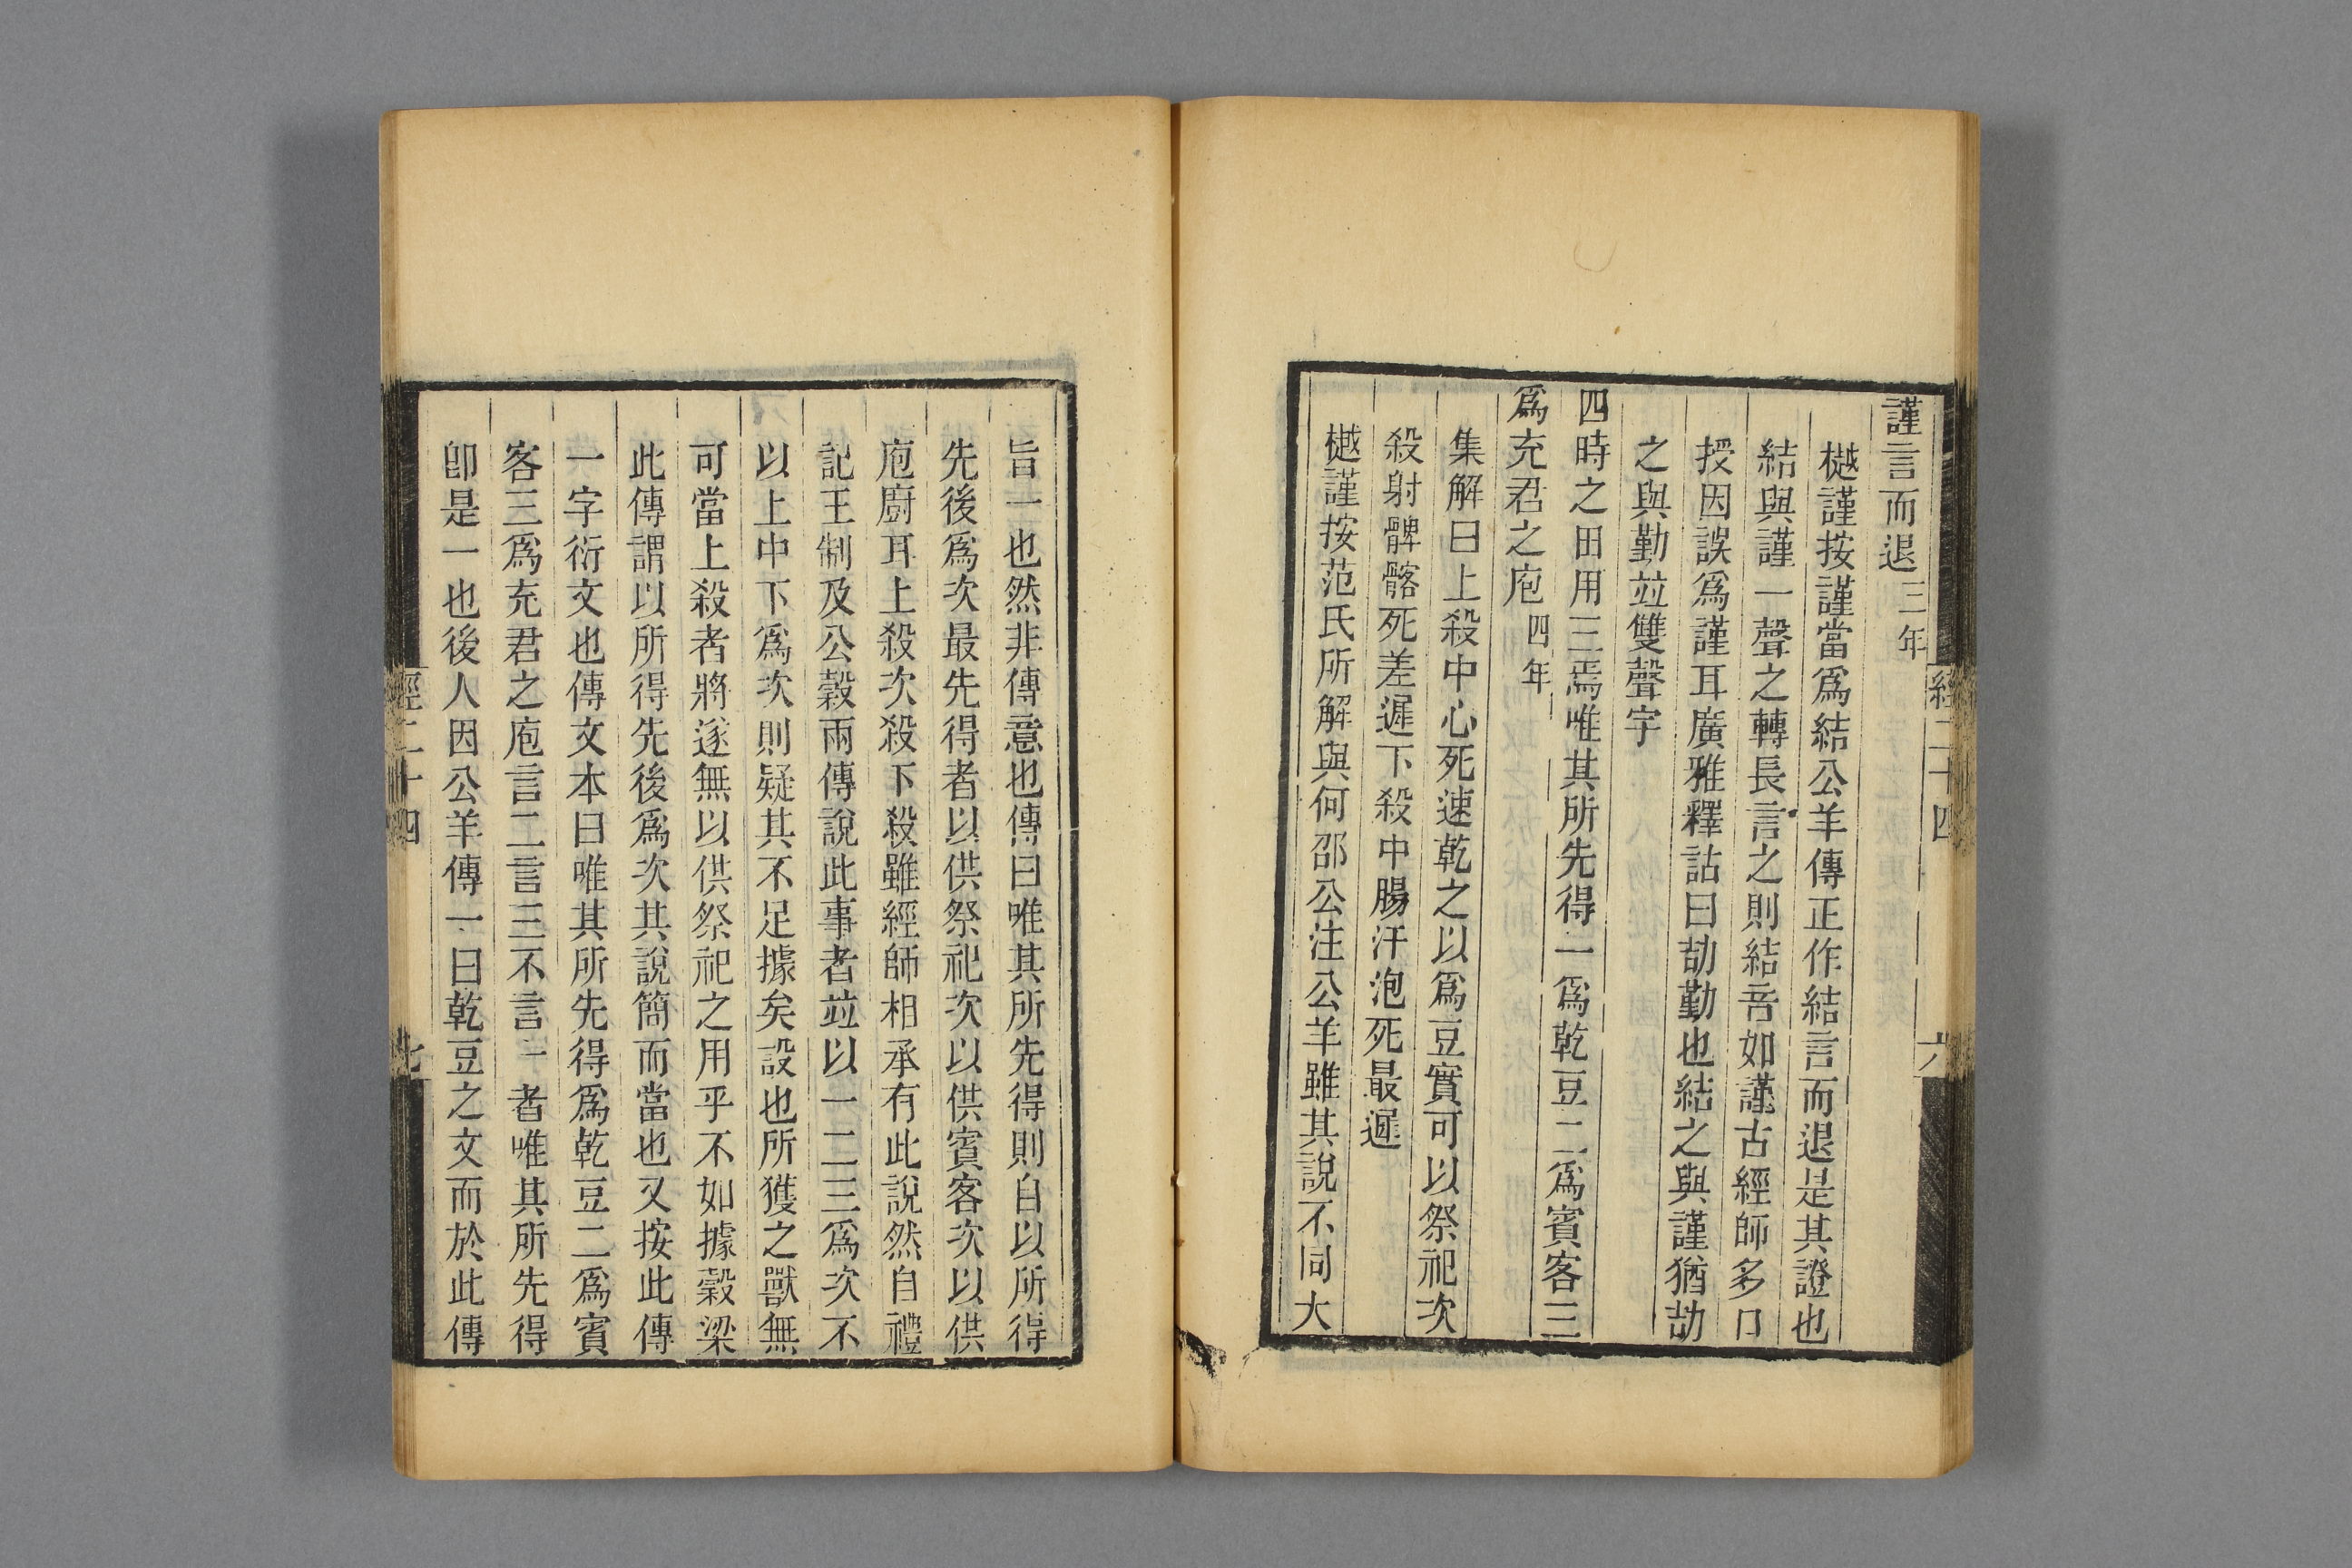 謹言而退三年
樾謹按謹當爲結公羊傳正作結言而退是其證也
結與謹一聲之轉長言之則結音如謹古經師多口
授因誤爲謹耳廣雅釋詁曰劼勤也結之與謹猶劼
之與勤竝雙聲字
四時之田用三焉唯其所先得一爲乾豆二爲賓客三
爲充君之庖四年
集解曰上殺中心死速乾之以爲豆實可以祭祀次
殺射髀髂死差遲下殺中腸汙泡死最遲
樾謹按范氏所解與何邵公注公羊雖其說不同大
經二十四
六
旨一也然非傳意也傳曰唯其所先得則自以所得
先後爲次最先得者以供祭祀次以供賓客次以供
庖廚耳上殺次殺下殺雖經師相承有此說然自禮
記王制及公穀兩傳說此事者竝以一二三爲次不
以上中下爲次則疑其不足據矣設也所獲之獸無
可當上殺者將遂無以供祭祀之用乎不如據穀梁
此傳謂以所得先後爲次其說簡而當也又按此傳
一字衍文也傳文本曰唯其所先得爲乾豆二爲賓
客三爲充君之庖言二言三不言一者唯其所先得
卽是一也後人因公羊傳一曰乾豆之文而於此傳
經二十四
七